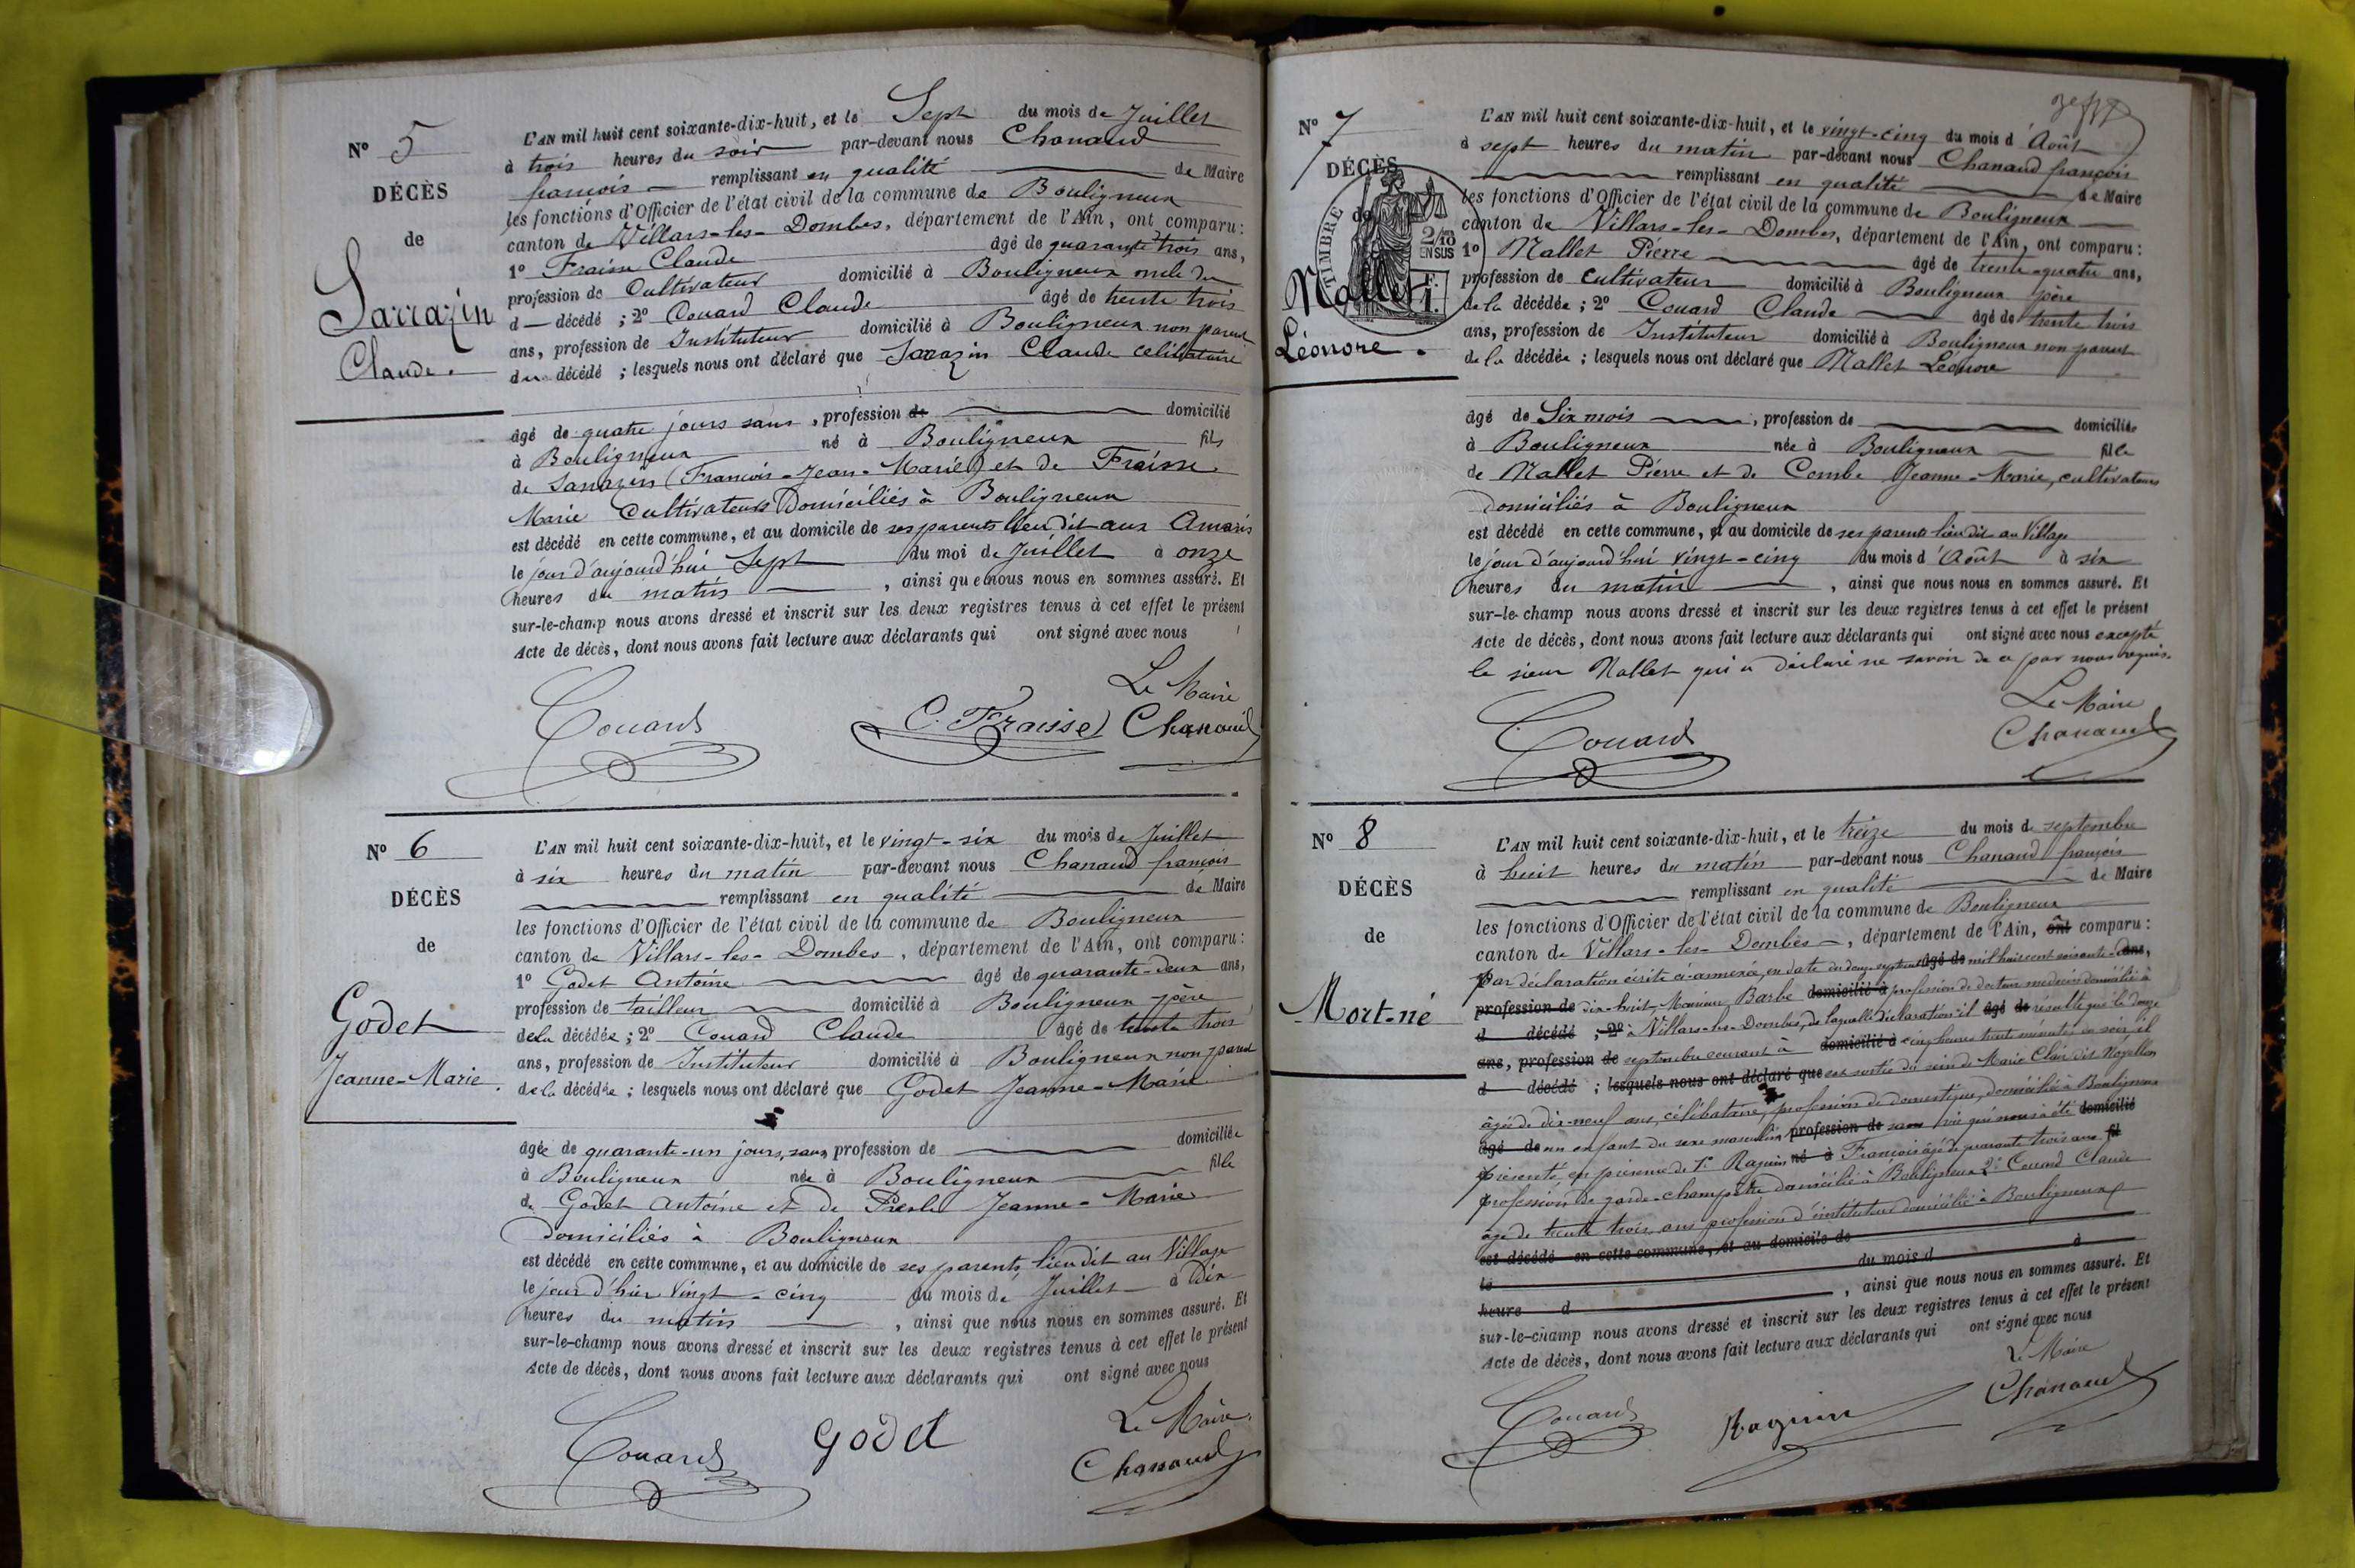 N° 5
DÉCÈS
de
Sarrazin
Claude.
L'AN mil huit cent soixante-dix-huit, et le Sept du mois de Juillet
à trois heures du soir par-devant nous Chanaud
françois remplissant en qualité de Maire
les fonctions d'Officier de l'état civil de la commune de Bouligneux
canton de Villars-les-Dombes, département de l'Ain, ont comparu :
1° Fraisse Claude âgé de quarante trois ans,
profession de Cultivateur domicilié à Bouligneux oncle du
d décédé ; 2° Couard Claude âgé de trente trois
ans, profession de Instituteur domicilié à Bouligneux non parent
du décédé ; lesquels nous ont déclaré que Sarrazin Claude celibataire
âgé de quatre jours sans , profession de domicilié
à Bouligneux né à Bouligneux fils
de Sarrazin (François-Jean-Marie) et de Fraisse
Marie Cultivateurs Domiciliés à Bouligneux
est décédé en cette commune, et au domicile de ses parents lieu dit aux
le jour d'aujourd'hui Sept du moi de Juillet à onze
heures du matin , ainsi que nous nous en sommes assuré. Et
sur-le-champ nous avons dressé et inscrit sur les deux registres tenus à cet effet le présent
Acte de décès, dont nous avons fait lecture aux déclarants qui ont signé avec nous
Le Maire
Couard C. Fraisse Chanaud
N° 6
DÉCÈS
de
Godet
Jeanne-Marie.
L'AN mil huit cent soixante-dix-huit, et le vingt-six du mois de Juillet
à six heures du matin par-devant nous Chanaud françois
remplissant en qualité de Maire
les fonctions d'Officier de l'état civil de la commune de Bouligneux
canton de Villars-les-Dombes, département de l'Ain, ont comparu :
1° Godet Antoine âgé de quarante-deux ans,
profession de tailleur domicilié à Bouligneux père
de la décédée ; 2° Couard Claude âgé de trente trois
ans, profession de Instituteur domicilié à Bouligneux non parent
de la décédée ; lesquels nous ont déclaré que Godet Jeanne-Marie
âgée de quarante-un jours, sans profession de domiciliée
à Bouligneux née à Bouligneux fille
de Godet Antoine et de Jeanne-Marie
domiciliés à Bouligneux
est décédé en cette commune, et au domicile de ses parents lieu dit au Village
le jour d'hier vingt-cinq du mois de Juillet à Dix
heures du matin , ainsi que nous nous en sommes assuré. Et
sur-le-champ nous avons dressé et inscrit sur les deux registres tenus à cet effet le présent
Acte de décès, dont nous avons fait lecture aux déclarants qui ont signé avec nous
Le Maire
Couard Godet Chanaud
N° 7
DÉCÈS
de
TIMBRE
2/10 EN SUS
Mallet
Léonore.
L'AN mil huit cent soixante-dix-huit, et le vingt-cinq du mois d'Août
à sept heures du matin par-devant nous Chanaud françois
remplissant en qualité de Maire
les fonctions d'Officier de l'état civil de la commune de Bouligneux
canton de Villars-les-Dombes, département de l'Ain, ont comparu :
1° Mallet Pierre âgé de trente-quatre ans,
profession de Cultivateur domicilié à Bouligneux père
de la décédée ; 2° Couard Claude âgé de trente trois
ans, profession de Instituteur domicilié à Bouligneux non parent
de la décédée ; lesquels nous ont déclaré que Mallet Léonore
âgé de Six mois , profession de domiciliée
à Bouligneux née à Bouligneux fille
de Mallet Pierre et de Combe Jeanne-Marie, cultivateurs
domiciliés à Bouligneux
est décédé en cette commune, et au domicile de ses parents lieu dit au Village
le jour d'aujourd'hui vingt-cinq du mois d'Août à six
heures du matin , ainsi que nous nous en sommes assuré. Et
sur-le-champ nous avons dressé et inscrit sur les deux registres tenus à cet effet le présent
Acte de décès, dont nous avons fait lecture aux déclarants qui ont signé avec nous excepté
le sieur Mallet qui a déclaré ne savoir de ce par nous requis.
Le Maire
Couard Chanaud
N° 8
DÉCÈS
de
Mort-né
L'AN mil huit cent soixante-dix-huit, et le treize du mois de septembre
à huit heures du matin par-devant nous Chanaud françois
remplissant en qualité de Maire
les fonctions d'Officier de l'état civil de la commune de Bouligneux
canton de Villars-les-Dombes, département de l'Ain, ont comparu :
Par déclaration écrite ci-annexée, en date du douze septembre âgé de mil huit cent soixante- ans,
profession de dix-huit, Monsieur Barbe domicilié à profession de docteur medecin domicilié à
d décédé ; 2° à Villars-les-Dombes, de laquelle déclaration il âgé de résulte que le douze
ans, profession de septembre courant à domicilié à cinq heures trente minutes du soir, il
d décédé ; lesquels nous ont déclaré que est sortie du sein de Marie Clair dit
âgée de dix-neuf ans, célibataire, profession de domestique, domiciliée à Bouligneux
âgé de un enfant du sexe masculin profession de sans vie qui nous a été domicilié
présenté, en présence de 1° Raguin né à François âgé de quarante trois ans fil
profession de garde-champêtre domicilié à Bouligneux 2° Couard Claude
âgé de trente trois ans profession d'instituteur domicilié à Bouligneux
est décédé en cette commune, et au domicile de
le du mois d à
heure d , ainsi que nous nous en sommes assuré. Et
sur-le-champ nous avons dressé et inscrit sur les deux registres tenus à cet effet le présent
Acte de décès, dont nous avons fait lecture aux déclarants qui ont signé avec nous
Le Maire
Couard Raguin Chanaud